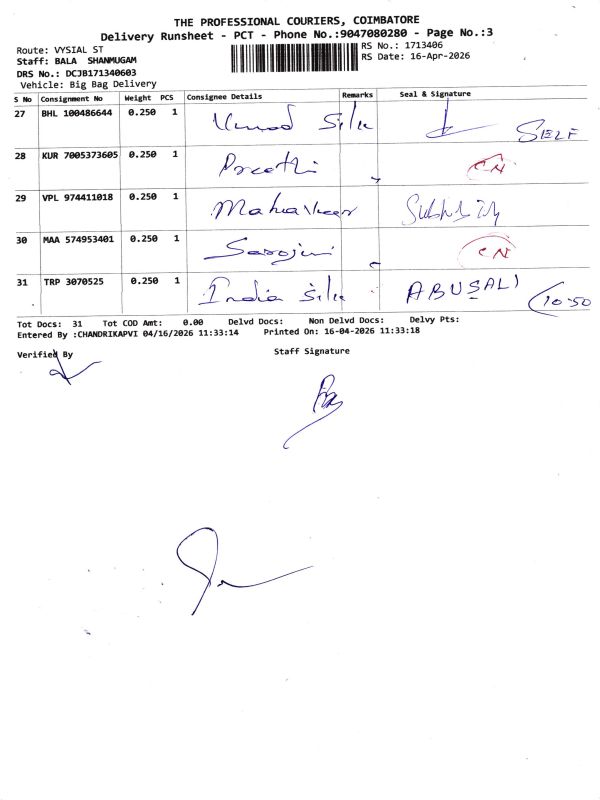 THE PROFESSIONAL COURIERS, COIMBATORE
Delivery Runsheet - PCT - Phone No.:9047080280 - Page No.:3
Route: VYSIAL ST
RS No.: 1713406
Staff: BALA SHANMUGAM
RS Date: 16-Apr-2026
DRS No.: DCJB171340603
Vehicle: Big Bag Delivery
S No Consignment No Weight PCS Consignee Details Remarks Seal & Signature
27 BHL 100486644 0.250 1 Silk SELF
28 KUR 7005373605 0.250 1 Preethi CN
29 VPL 974411018 0.250 1 Mahaveer
30 MAA 574953401 0.250 1 Sarojini CN
31 TRP 3070525 0.250 1 India Silk ABUSALI 10-50
Tot Docs: 31 Tot COD Amt: 0.00 Delvd Docs: Non Delvd Docs: Delvy Pts:
Entered By :CHANDRIKAPVI 04/16/2026 11:33:14 Printed On: 16-04-2026 11:33:18
Verified By Staff Signature